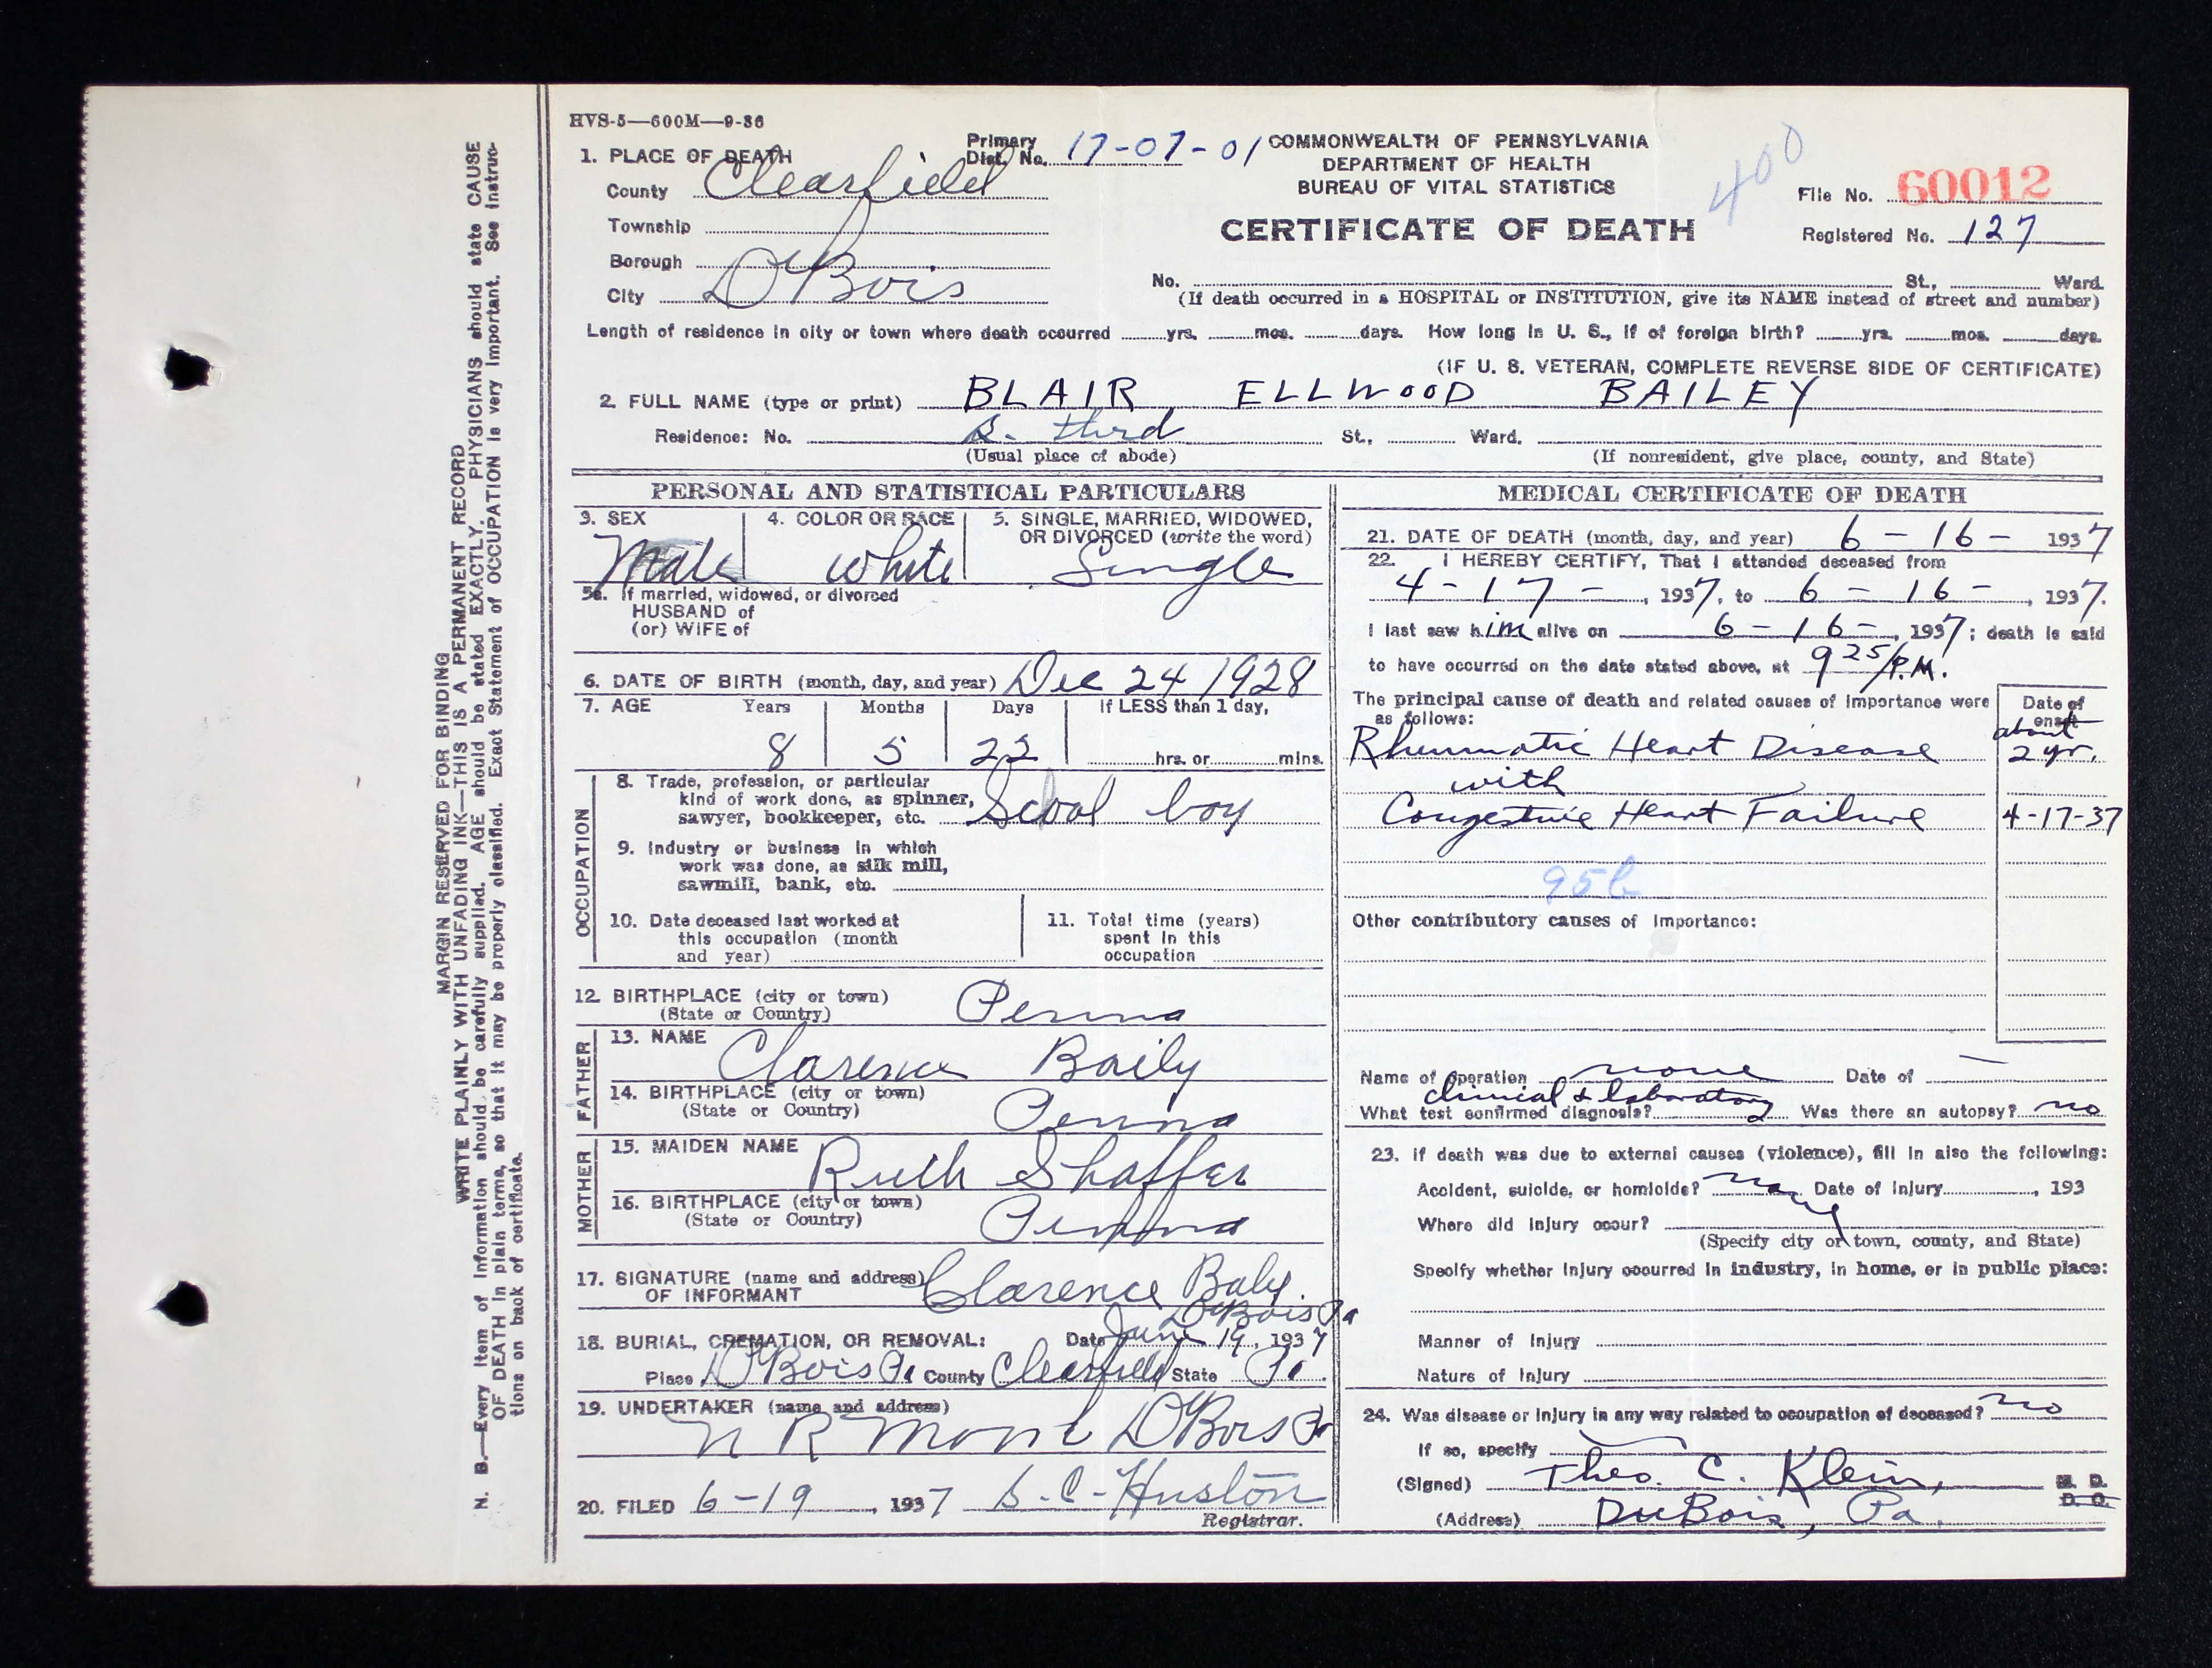 HVS-5—600M—9-36
Primary Dist. No. 17-07-01
COMMONWEALTH OF PENNSYLVANIA
DEPARTMENT OF HEALTH
BUREAU OF VITAL STATISTICS
CERTIFICATE OF DEATH
400
File No. 60012
Registered No. 127
1. PLACE OF DEATH
County Clearfield
Township
Borough
City DuBois
No. St., Ward.
(If death occurred in a HOSPITAL or INSTITUTION, give its NAME instead of street and number)
Length of residence in city or town where death occurred yrs. mos. days. How long in U. S., if of foreign birth? yrs. mos. days.
(IF U. S. VETERAN, COMPLETE REVERSE SIDE OF CERTIFICATE)
2. FULL NAME (type or print) BLAIR ELLWOOD BAILEY
Residence: No. S. third St., Ward.
(Usual place of abode) (If nonresident, give place, county, and State)
PERSONAL AND STATISTICAL PARTICULARS
3. SEX 4. COLOR OR RACE 5. SINGLE, MARRIED, WIDOWED,
OR DIVORCED (write the word)
Male white Single
5a. If married, widowed, or divorced
HUSBAND of
(or) WIFE of
6. DATE OF BIRTH (month, day, and year) Dec 24 1928
7. AGE Years Months Days If LESS than 1 day,
8 5 22 hrs. or mins.
OCCUPATION
8. Trade, profession, or particular
kind of work done, as spinner,
sawyer, bookkeeper, etc. Scool boy
9. Industry or business in which
work was done, as silk mill,
sawmill, bank, etc.
10. Date deceased last worked at
this occupation (month
and year)
11. Total time (years)
spent in this
occupation
12. BIRTHPLACE (city or town)
(State or Country) Penna
FATHER
13. NAME Clarence Baily
14. BIRTHPLACE (city or town)
(State or Country) Penna
MOTHER
15. MAIDEN NAME Ruth Shaffer
16. BIRTHPLACE (city or town)
(State or Country) Penna
17. SIGNATURE (name and address)
OF INFORMANT Clarence Baly
DuBois Pa
18. BURIAL, CREMATION, OR REMOVAL: Date June 19, 1937
Place DuBois Pa County Clearfield State Pa.
19. UNDERTAKER (name and address)
N R Moore DuBois Pa
20. FILED 6-19, 1937 S. C. Huston
Registrar.
MEDICAL CERTIFICATE OF DEATH
21. DATE OF DEATH (month, day, and year) 6 - 16 - 1937
22. I HEREBY CERTIFY, That I attended deceased from
4 - 17 -, 1937, to 6 - 16 -, 1937.
I last saw him alive on 6 - 16 -, 1937; death is said
to have occurred on the date stated above, at 9 25/P.M.
The principal cause of death and related causes of importance were
as follows:
Date of
onset
Rheumatic Heart Disease about 2 yr.
with
Congestive Heart Failure 4-17-37
95b
Other contributory causes of importance:
Name of operation none Date of —
What test confirmed diagnosis? clinical & laboratory Was there an autopsy? no
23. If death was due to external causes (violence), fill in also the following:
Accident, suicide, or homicide? Date of injury, 193
Where did injury occur?
(Specify city or town, county, and State)
Specify whether injury occurred in industry, in home, or in public place:
Manner of injury
Nature of injury
24. Was disease or injury in any way related to occupation of deceased? no
If so, specify
(Signed) Theo. C. Klein, M. D.
D. O.
(Address) DuBois, Pa.
MARGIN RESERVED FOR BINDING
WRITE PLAINLY WITH UNFADING INK—THIS IS A PERMANENT RECORD
N. B.—Every item of information should be carefully supplied. AGE should be stated EXACTLY. PHYSICIANS should state CAUSE
OF DEATH in plain terms, so that it may be properly classified. Exact Statement of OCCUPATION is very important. See instruc-
tions on back of certificate.